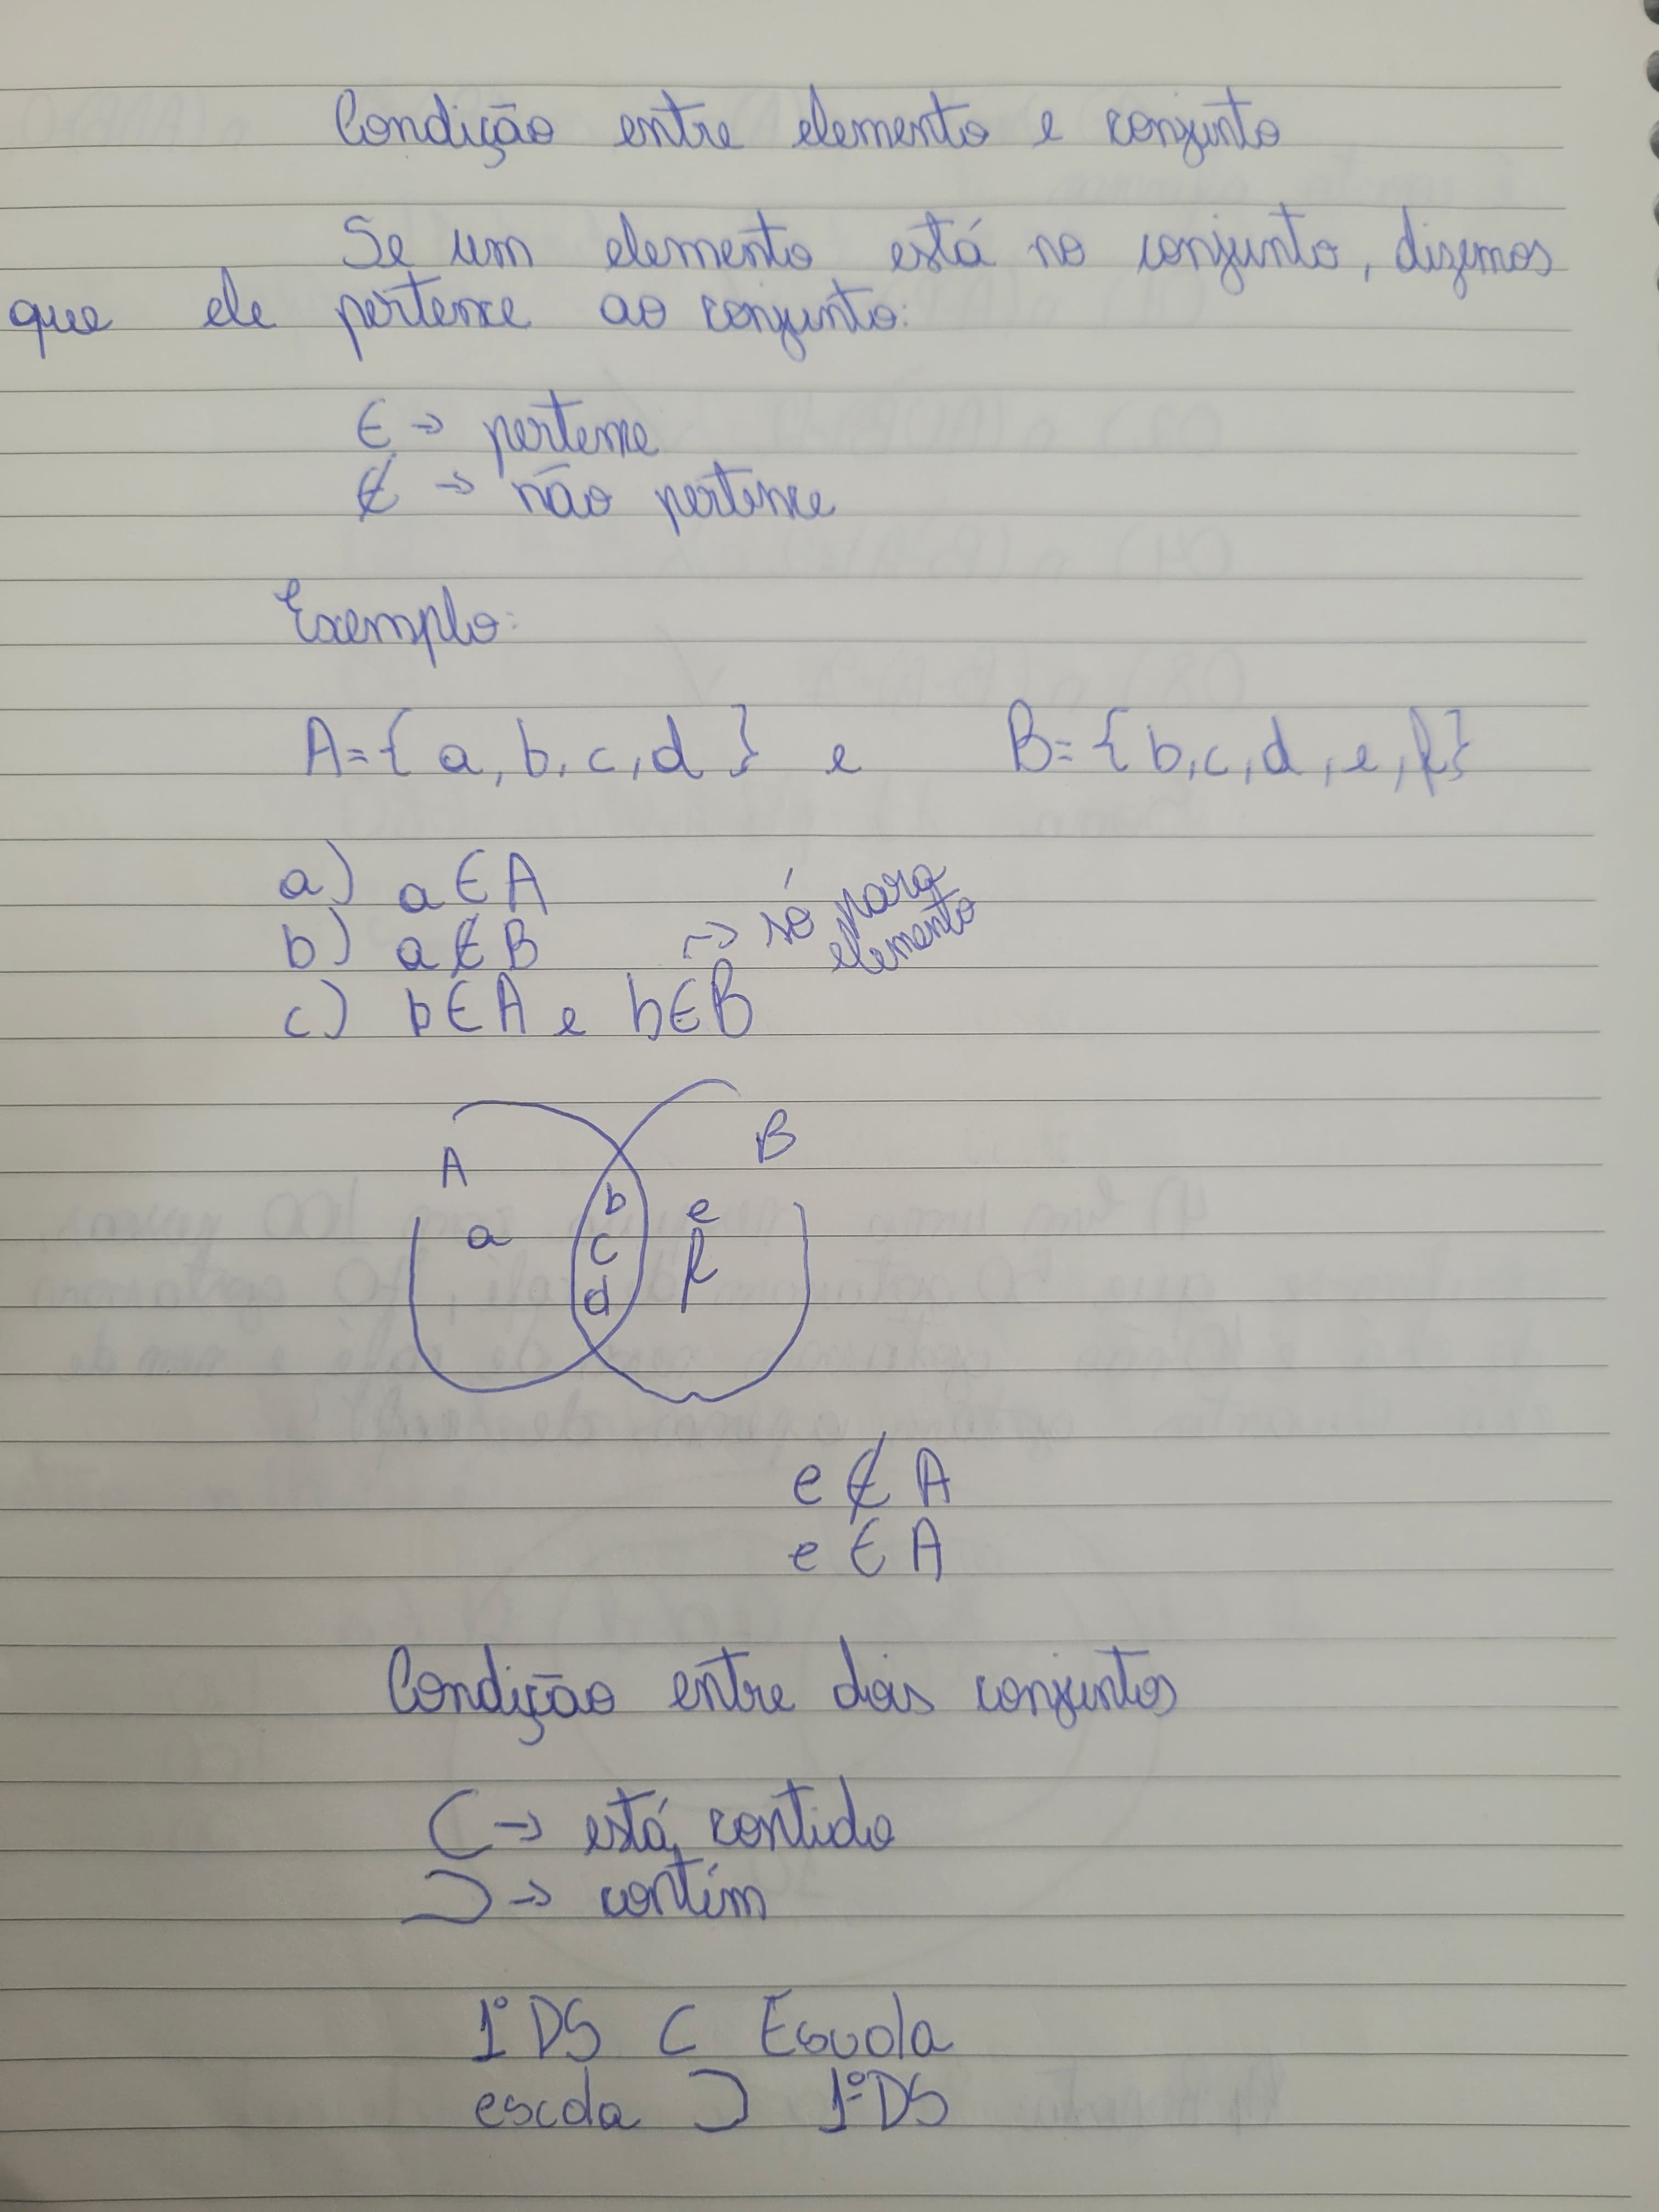 Condição entre elemento e conjunto
Se um elemento está no conjunto, dizemos
que ele pertence ao conjunto:
∈ → pertence
∉ → não pertence
Exemplo:
A={a, b, c, d} e B={b, c, d, e, f}
a) a ∈ A
b) a ∉ B → só para elemento
c) b ∈ A e b ∈ B
A B
a b e
c f
d
e ∉ A
e ∈ A
Condição entre dois conjuntos
⊂ → está contido
⊃ → contém
1º DS ⊂ Escola
escola ⊃ 1º DS